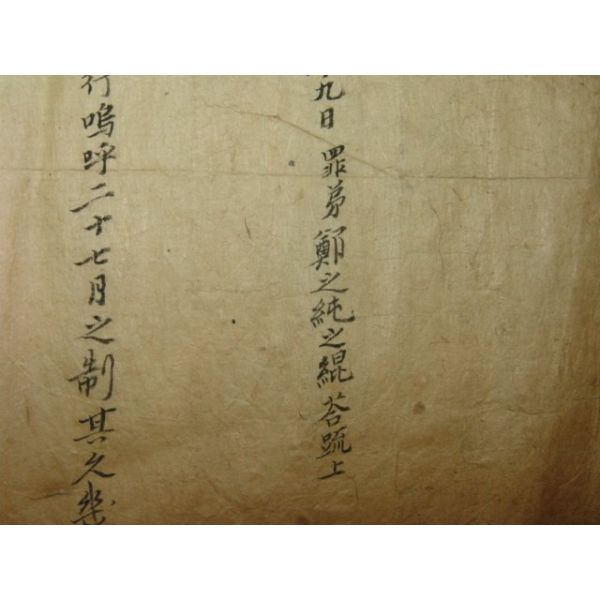 九日 罪弟鄭之純之緄 答疏上
行嗚呼二十七月之制其久幾